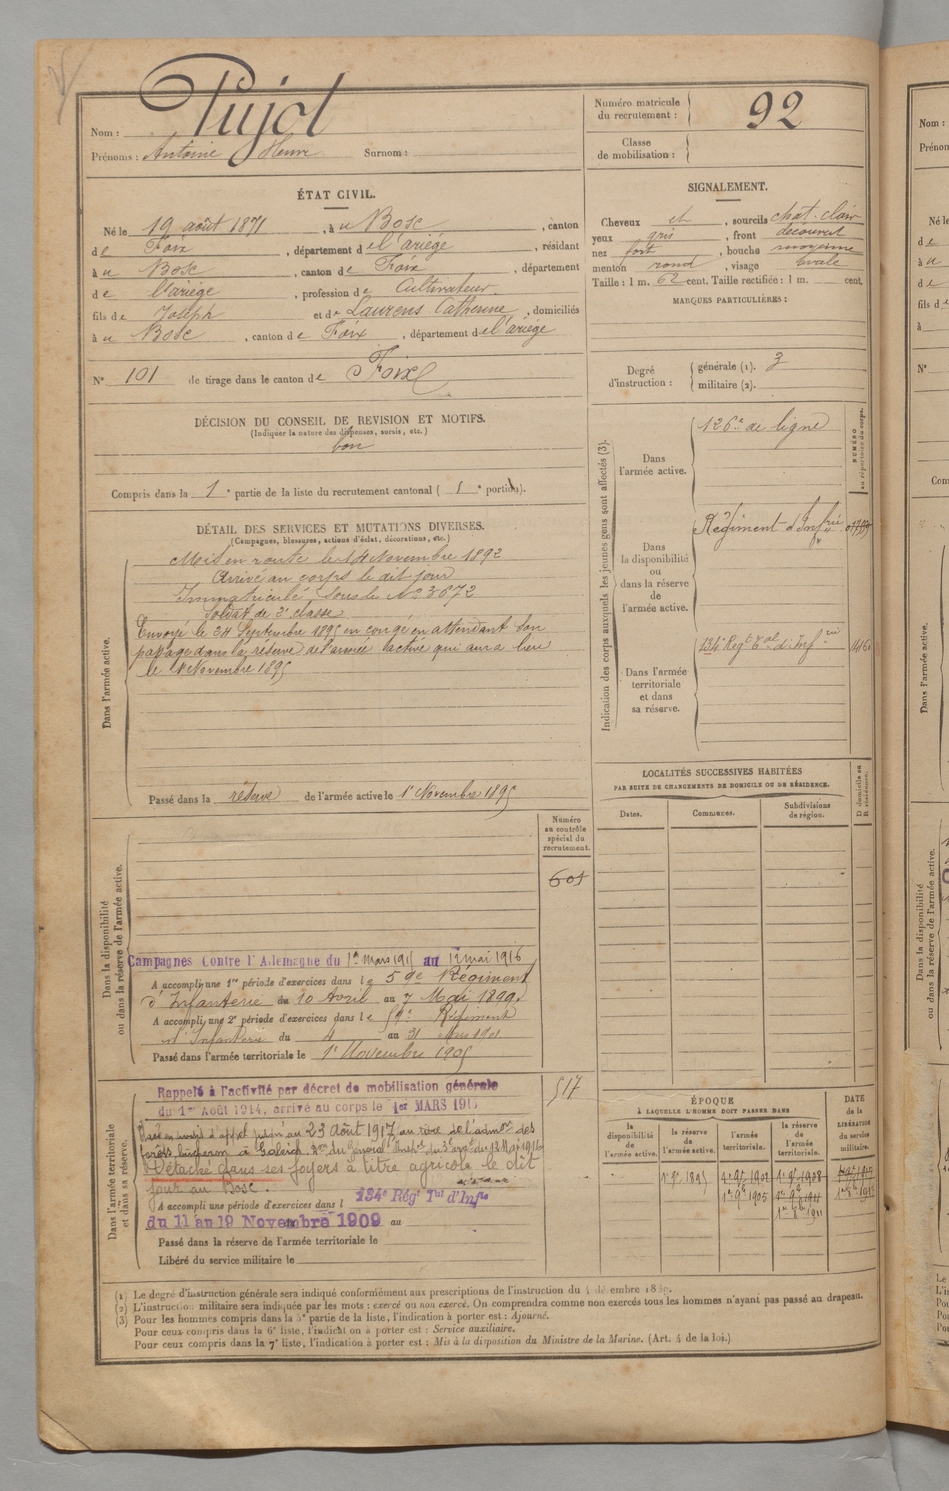 Nom : Pujol
Prénoms : Antoine Henri Surnom :
Numéro matricule du recrutement : 92
Classe de mobilisation :
ÉTAT CIVIL.
Né le 19 août 1871, à u Bosc, canton
de Foix, département de l'ariége, résidant
à u Bosc, canton de Foix, département
de l'ariége, profession de Cultivateur
fils de Joseph et de Laurens Catherine, domiciliés
à u Bosc, canton de Foix, département de l'ariége
N° 101 de tirage dans le canton de Foix
SIGNALEMENT.
Cheveux et, sourcils chat. clair
yeux gris, front découvert
nez fort, bouche moyenne
menton rond, visage ovale
Taille : 1 m. 62 cent. Taille rectifiée : 1 m. cent.
MARQUES PARTICULIÈRES :
Degré d'instruction : générale (1). 3
militaire (2).
DÉCISION DU CONSEIL DE REVISION ET MOTIFS.
(Indiquer la nature des dispenses, sursis, etc.)
bon
Compris dans la 1e partie de la liste du recrutement cantonal ( 1e portion).
DÉTAIL DES SERVICES ET MUTATIONS DIVERSES.
(Campagnes, blessures, actions d'éclat, décorations, etc.)
Dans l'armée active.
Mis en route le 14 Novembre 1892
Arrivé au corps le dit jour
Immatriculé sous le N° 3672
Soldat de 2e classe
Envoyé le 24 Septembre 1895 en congé en attendant son
passage dans la réserve de l'armée active qui aura lieu
le 1er Novembre 1895
Passé dans la réserve de l'armée active le 1er Novembre 1895
Indication des corps auxquels les jeunes gens sont affectés (3).
NUMÉRO au répertoire du corps.
Dans l'armée active.
126e de ligne
Dans la disponibilité ou dans la réserve de l'armée active.
Régiment d'Infrie
Dans l'armée territoriale et dans sa réserve.
134e Regt Tal d'Infrie
LOCALITÉS SUCCESSIVES HABITÉES
PAR SUITE DE CHANGEMENTS DE DOMICILE OU DE RÉSIDENCE.
Dates.
Communes.
Subdivisions de région.
D domicile ou R résidence.
Dans la disponibilité ou dans la réserve de l'armée active.
Numéro au contrôle spécial du recrutement.
601
Campagnes Contre l'Allemagne du 1er mars 1915 au 12 mai 1916
A accompli une 1re période d'exercices dans le 59e Régiment
d'Infanterie du 10 Avril au 7 Mai 1899.
A accompli une 2e période d'exercices dans le 59e Régiment
d'Infanterie du 4 au 31 Mars 1901
Passé dans l'armée territoriale le 1er Novembre 1905
Dans l'armée territoriale et dans sa réserve.
517
Rappelé à l'activité par décret de mobilisation générale
du 1er Août 1914, arrivé au corps le 1er MARS 1915
23 Août 1917 au titre de l'admon des
Détaché dans ses foyers à titre agricole le dit
jour au Bosc.
A accompli une période d'exercices dans l 134e Régt Tal d'Infie
du 11 au 19 Novembre 1909 au
Passé dans la réserve de l'armée territoriale le
Libéré du service militaire le
ÉPOQUE
À LAQUELLE L'HOMME DOIT PASSER DANS
la disponibilité de l'armée active.
la réserve de l'armée active.
l'armée territoriale.
la réserve de l'armée territoriale.
DATE de la LIBÉRATION du service militaire.
1er 9bre 1895
1er 9bre 1905
(1) Le degré d'instruction générale sera indiqué conformément aux prescriptions de l'instruction du
(2) L'instruction militaire sera indiquée par les mots : exercé ou non exercé. On comprendra comme non exercés tous les hommes n'ayant pas passé au drapeau.
(3) Pour les hommes compris dans la 5e partie de la liste, l'indication à porter est : Ajourné.
Pour ceux compris dans la 6e liste, l'indication à porter est : Service auxiliaire.
Pour ceux compris dans la 7e liste, l'indication à porter est : Mis à la disposition du Ministre de la Marine. (Art. 4 de la loi.)